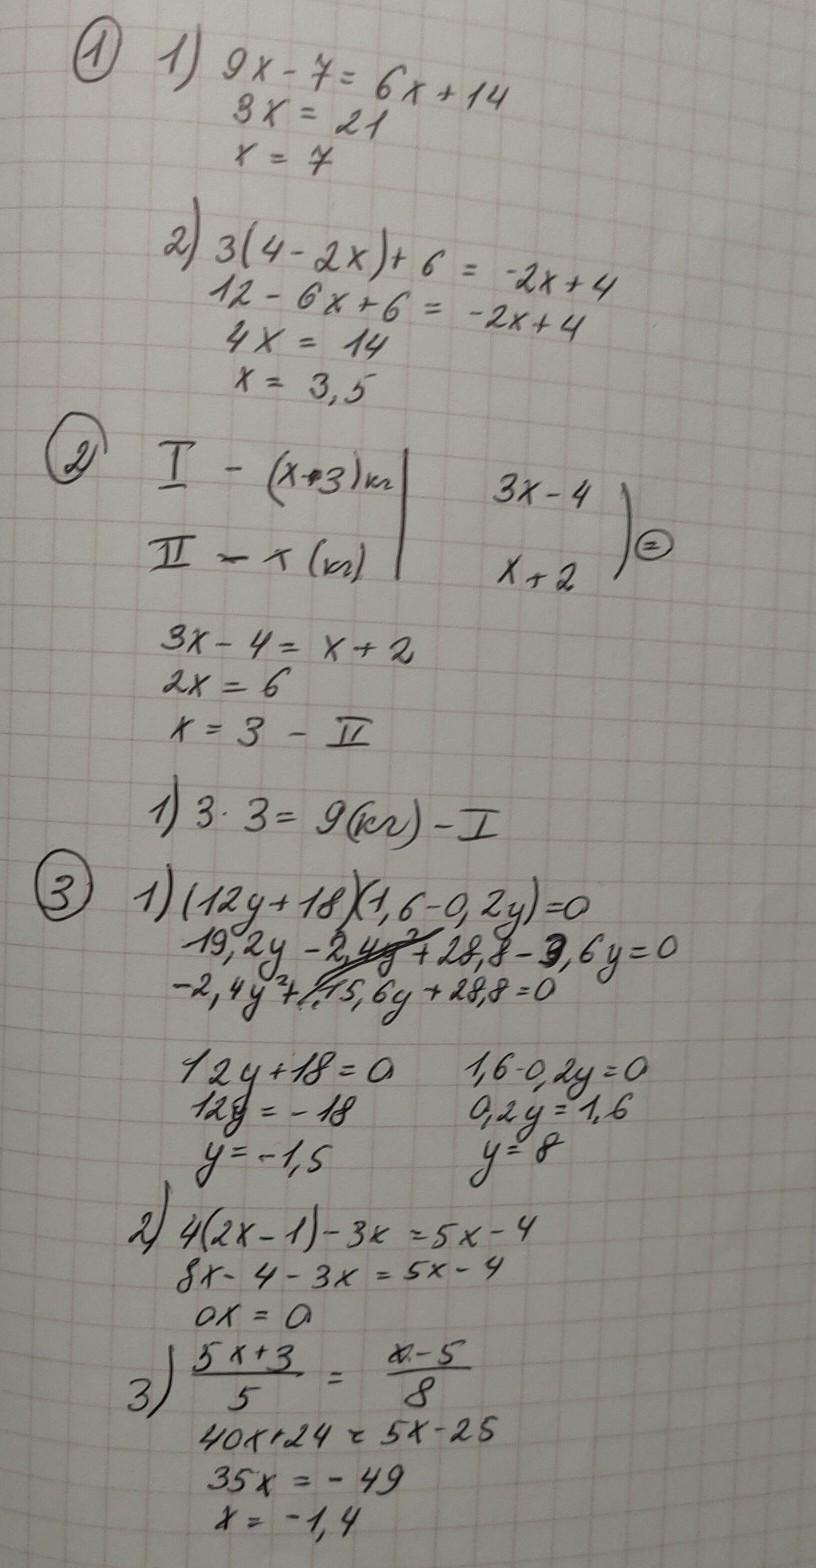 ① 1) 9x - 7 = 6x + 14
3x = 21
x = 7
2) 3(4 - 2x) + 6 = -2x + 4
12 - 6x + 6 = -2x + 4
4x = 14
x = 3,5
② I - (x·3) кг 3x - 4
II - x (кг) x + 2 =
3x - 4 = x + 2
2x = 6
x = 3 - II
1) 3 · 3 = 9 (кг) - I
③ 1) (12y + 18)(1,6 - 0,2y) = 0
19,2y - 2,4y² + 28,8 - 3,6y = 0
-2,4y² + 15,6y + 28,8 = 0
12y + 18 = 0 1,6 - 0,2y = 0
12y = -18 0,2y = 1,6
y = -1,5 y = 8
2) 4(2x - 1) - 3x = 5x - 4
8x - 4 - 3x = 5x - 4
0x = 0
3) (5x + 3)/5 = (x - 5)/8
40x + 24 = 5x - 25
35x = -49
x = -1,4